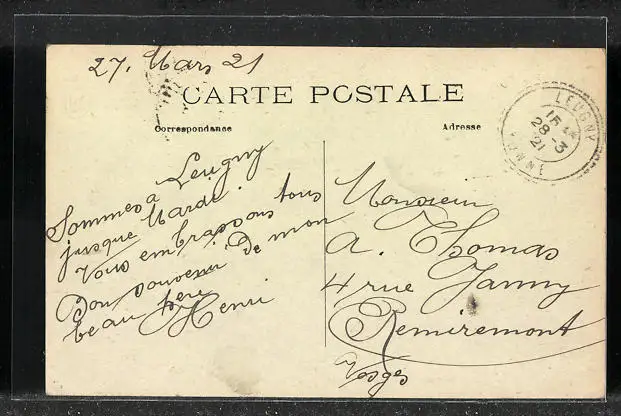 27. Mars 21
CARTE POSTALE
Correspondance
Adresse
LEUGNY
15
28-3
21
YONNE
Sommes à Leugny
jusque Mardi.
Vous embrassons tous
Bon souvenir de mon
beau père
Henri
Monsieur
A. Thomas
4 rue Janny
Remiremont
Vosges